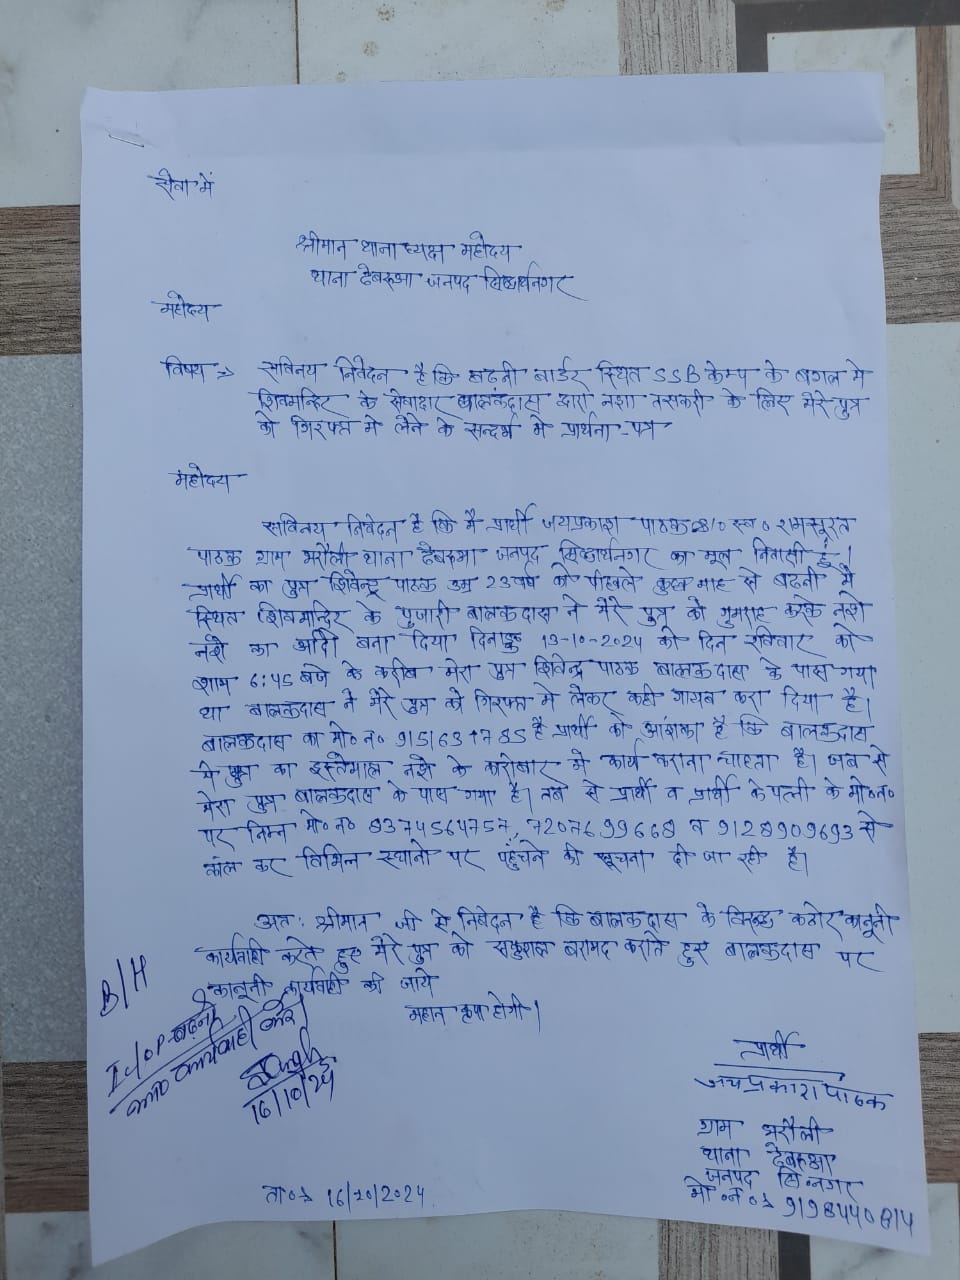 सेवा में
श्रीमान थानाध्यक्ष महोदय
थाना ढेबरूआ जनपद सिद्धार्थनगर
महोदय
विषय => सविनय निवेदन है कि बढनी बार्डर स्थित SSB केम्प के बगल मे
शिवमन्दिर के सेवादार बालकदास द्वारा नशा तसकरी के लिए मेरे पुत्र
को गिरफ्त मे लेने के सन्दर्भ मे प्रार्थना-पत्र
महोदय
सविनय निवेदन है कि मै प्रार्थी जयप्रकाश पाठक S/O स्व० रामसूरत
पाठक ग्राम भरौली थाना ढेबरूआ जनपद सिद्धार्थनगर का मूल निवासी हूं।
प्रार्थी का पुत्र शिवेन्द्र पाठक उम्र 23 वर्ष को पीछले कुछ माह से बढनी मे
स्थित शिवमन्दिर के पुजारी बालकदास ने मेरे पुत्र को गुमराह करके नशे
नशे का आदी बना दिया दिनाङ्क 13-10-2024 को दिन रविवार को
शाम 6:45 बजे के करीब मेरा पुत्र शिवेन्द्र पाठक बालकदास के पास गया
था बालकदास ने मेरे पुत्र को गिरफ्त मे लेकर कही गायब करा दिया है।
बालकदास का मो० न० है प्रार्थी को आंशका है कि बालकदास
मे पुत्र का इस्तेमाल नशे के कारोबार मे कार्य कराना चाहता है। जब से
मेरा पुत्र बालकदास के पास गया है। तब से प्रार्थी व प्रार्थी के पत्नी के मो०न०
पर निम्न मो० न० 8374564757, 7207699668 व 9128909693 से
कॉल कर विभिन्न स्थानो पर पहुंचने की सूचना दी जा रही है।
अतः श्रीमान जी से निवेदन है कि बालकदास के विरूद्ध कठोर कानूनी
कार्यवाही करते हुए मेरे पुत्र को सकुशल बरामद कराते हुए बालकदास पर
कानूनी कार्यवाही की जाये
महान कृपा होगी।
B/H
I/c OP-बढनी
कार्यवाही करें
16/10/24
प्रार्थी
जयप्रकाश पाठक
ग्राम भरौली
थाना ढेबरूआ
जनपद सि०नगर
मो०न० => 9198440814
ता० => 16/10/2024